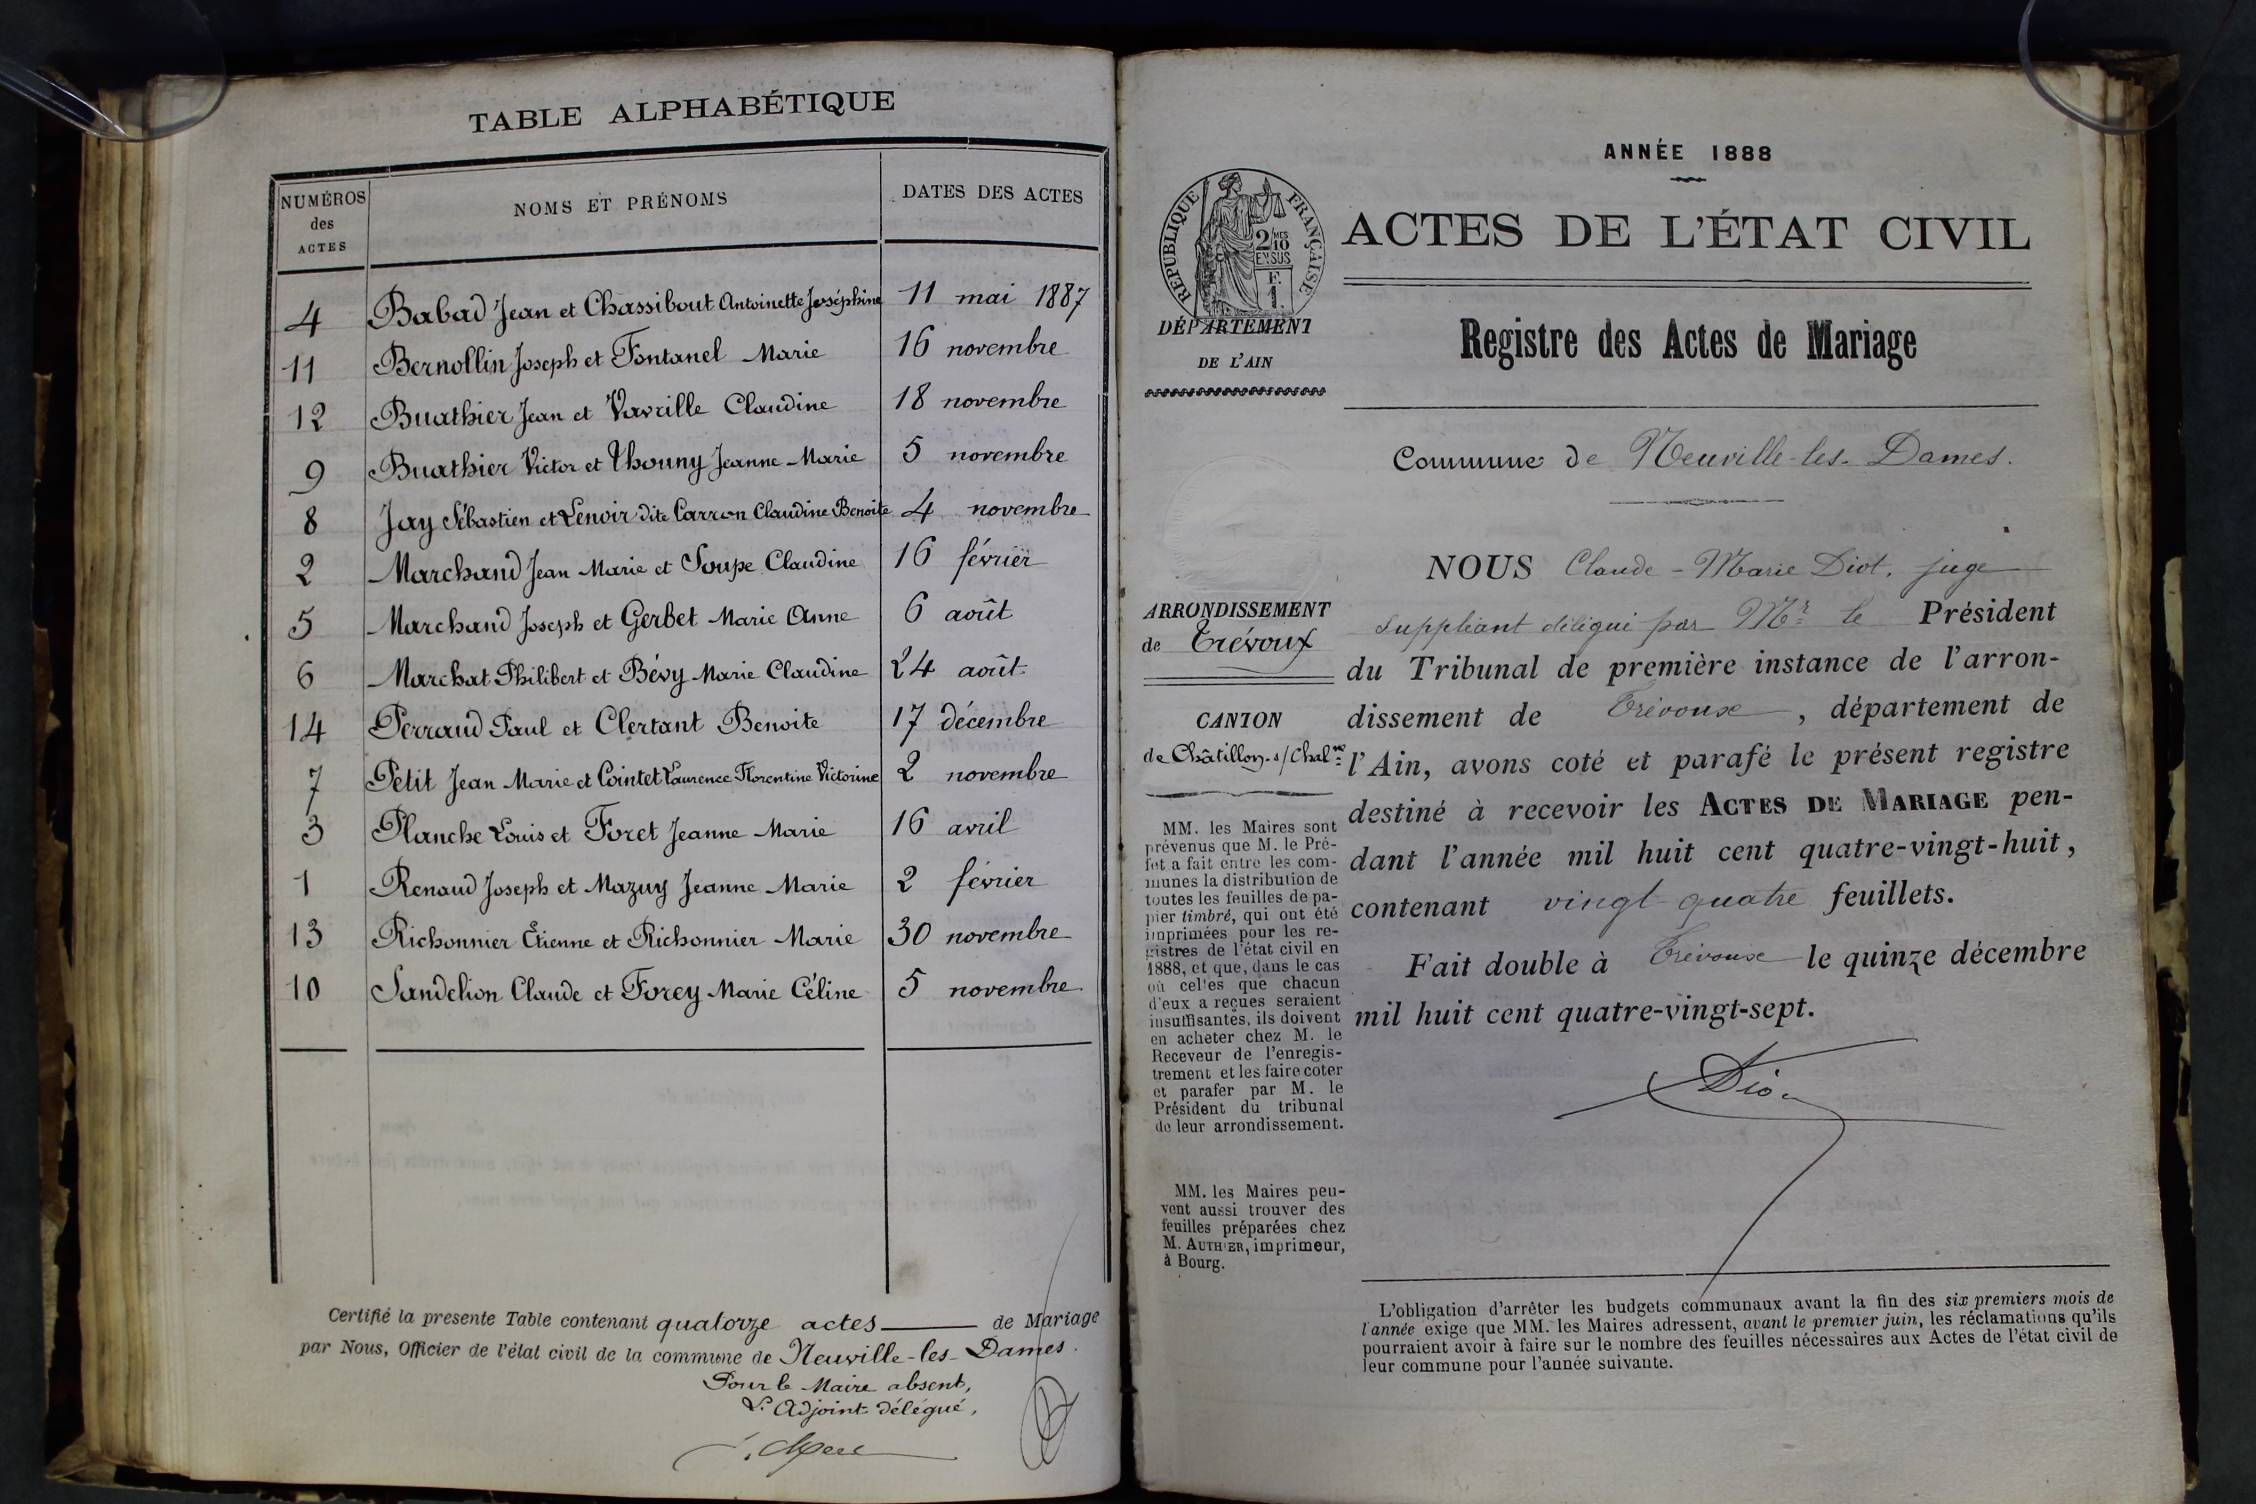 TABLE ALPHABÉTIQUE
NUMÉROS des ACTES NOMS ET PRÉNOMS DATES DES ACTES
4 Babad Jean et Chassibout Antoinette Joséphine 11 mai 1887
11 Bernollin Joseph et Fontanel Marie 16 novembre
12 Buathier Jean et Vavrille Claudine 18 novembre
9 Buathier Victor et Thouny Jeanne-Marie 5 novembre
8 Jay Sébastien et Lenoir dite Carron Claudine Benoite 4 novembre
2 Marchand Jean Marie et Soupe Claudine 16 février
5 Marchand Joseph et Gerbet Marie Anne 6 août
6 Marchat Philibert et Bévy Marie Claudine 24 août
14 Perraud Paul et Clertant Benoite 17 décembre
7 Petit Jean Marie et Cointet Laurence Florentine Victorine 2 novembre
3 Planche Louis et Foret Jeanne Marie 16 avril
1 Renaud Joseph et Mazuy Jeanne Marie 2 février
13 Richonnier Etienne et Richonnier Marie 30 novembre
10 Sandelion Claude et Forey Marie Céline 5 novembre
Certifié la presente Table contenant quatorze actes de Mariage
par Nous, Officier de l'état civil de la commune de Neuville-les-Dames.
Pour le Maire absent,
L'Adjoint délégué,
ANNÉE 1888
RÉPUBLIQUE FRANÇAISE
2 MES 10
EN SUS
F.
1.
ACTES DE L'ÉTAT CIVIL
DÉPARTEMENT
DE L'AIN
Registre des Actes de Mariage
Commune de Neuville-les-Dames.
ARRONDISSEMENT
de Trévoux
CANTON
de Châtillon-s/Chalne
MM. les Maires sont
prévenus que M. le Pré-
fet a fait entre les com-
munes la distribution de
toutes les feuilles de pa-
pier timbré, qui ont été
imprimées pour les re-
gistres de l'état civil en
1888, et que, dans le cas
où celles que chacun
d'eux a reçues seraient
insuffisantes, ils doivent
en acheter chez M. le
Receveur de l'enregis-
trement et les faire coter
et parafer par M. le
Président du tribunal
de leur arrondissement.
MM. les Maires peu-
vent aussi trouver des
feuilles préparées chez
M. AUTHIER, imprimeur,
à Bourg.
NOUS Claude-Marie Diot, juge
suppléant délégué par Mr le Président
du Tribunal de première instance de l'arron-
dissement de Trévoux, département de
l'Ain, avons coté et parafé le présent registre
destiné à recevoir les ACTES DE MARIAGE pen-
dant l'année mil huit cent quatre-vingt-huit,
contenant vingt-quatre feuillets.
Fait double à Trévoux le quinze décembre
mil huit cent quatre-vingt-sept.
Diot
L'obligation d'arrêter les budgets communaux avant la fin des six premiers mois de
l'année exige que MM. les Maires adressent, avant le premier juin, les réclamations qu'ils
pourraient avoir à faire sur le nombre des feuilles nécessaires aux Actes de l'état civil de
leur commune pour l'année suivante.